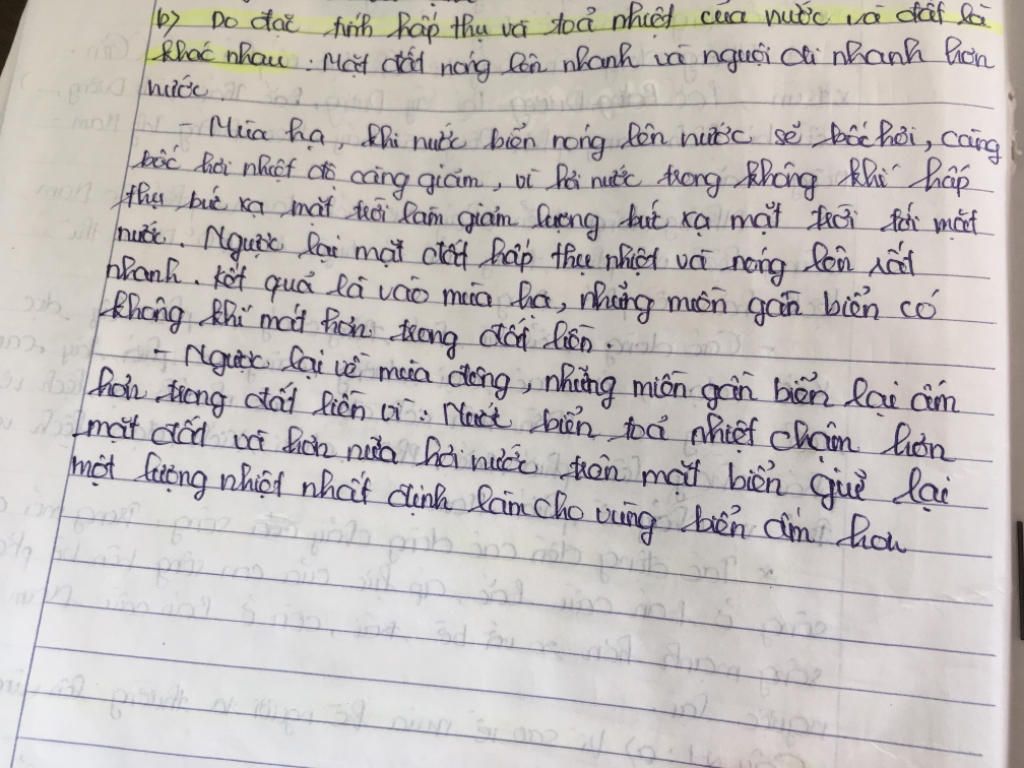 b) Do đặc tính hấp thụ và toả nhiệt của nước và đất là
khác nhau. Mặt đất nóng lên nhanh và nguội đi nhanh hơn
nước.
- Mùa hạ, khi nước biển nóng lên nước sẽ bốc hơi, càng
bốc hơi nhiệt độ càng giảm, vì hơi nước trong không khí hấp
thụ bức xạ mặt trời làm giảm lượng bức xạ mặt trời tới mặt
nước. Ngược lại mặt đất hấp thụ nhiệt và nóng lên rất
nhanh. Kết quả là vào mùa hạ, những miền gần biển có
không khí mát hơn trong đất liền.
- Ngược lại về mùa đông, những miền gần biển lại ấm
hơn trong đất liền vì: Nước biển toả nhiệt chậm hơn
mặt đất và hơn nữa hơi nước trên mặt biển giữ lại
một lượng nhiệt nhất định làm cho vùng biển ấm hơn